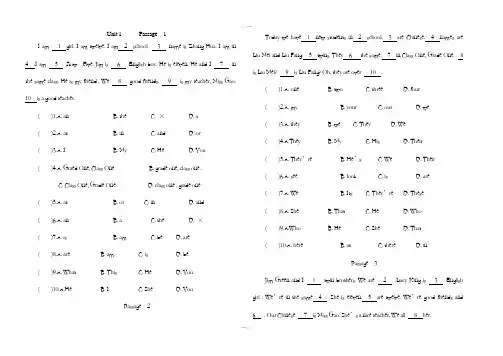 Unit 1 Passage 1
I am 1 girl. I am twelve. I am 2 school. 3 name is Zhang Hua. I am in
4 .I am 5 Jimp Bye. Jim is 6 English boy. He is eleven. He and I 7 in
the same class. He is my friend. We 8 good friends. 9 is my teacher, Miss Gao.
10 is a good teacher.
( )1.A. an B. the C. × D. a
( )2.A. at B. on C. and D. or
( )3.A. I B. My C. He D. You
( )4.A. Grand One, Class One B. grade one, class one.
C. Class One, Grade One D. class one, grade one
( )5.A. at B. on C. in D. and
( )6.A. an B. a C. the D. ×
( )7.A. is B. am C. be D. are
( )8.A. are B. am C. is D. be
( )9.A. What B. This C. He D. You
( )10.A.He B. I C. She D. You
Passage 2
Today we have 1 new students in 2 school. 3 are Chinese. 4 names are
Liu Mei and Liu Fang. 5 twins. They 6 the same. 7 in Class One, Grade One. 8
is Liu Mei? 9 is Liu Fang? Oh, they are over 10 .
( )1.A. one B. two C. three D. four
( )2.A. my B. your C. our D. me
( )3.A. they B. we C. They D. We
( )4.A.They B. My C. His D. Their
( )5.A. They're B. He's C. We D. Their
( )6.A. see B. look C. is D. are
( )7.A. We B. Its C. They're D. There
( )8.A. She B. That C. He D. Who
( )9.A.Who B. He C. She D. That
( )10.A. here B. on C. there D. in
Passage 3
Jim Green and I 1 twin brothers. We are 2 . Lucy King is 3 English
girl . We're in the same 4 . She is eleven. 5 are twelve. We're good friends and
6 . Our Chinese 7 is Miss Gao. She's a nice teacher. We all 8 her.